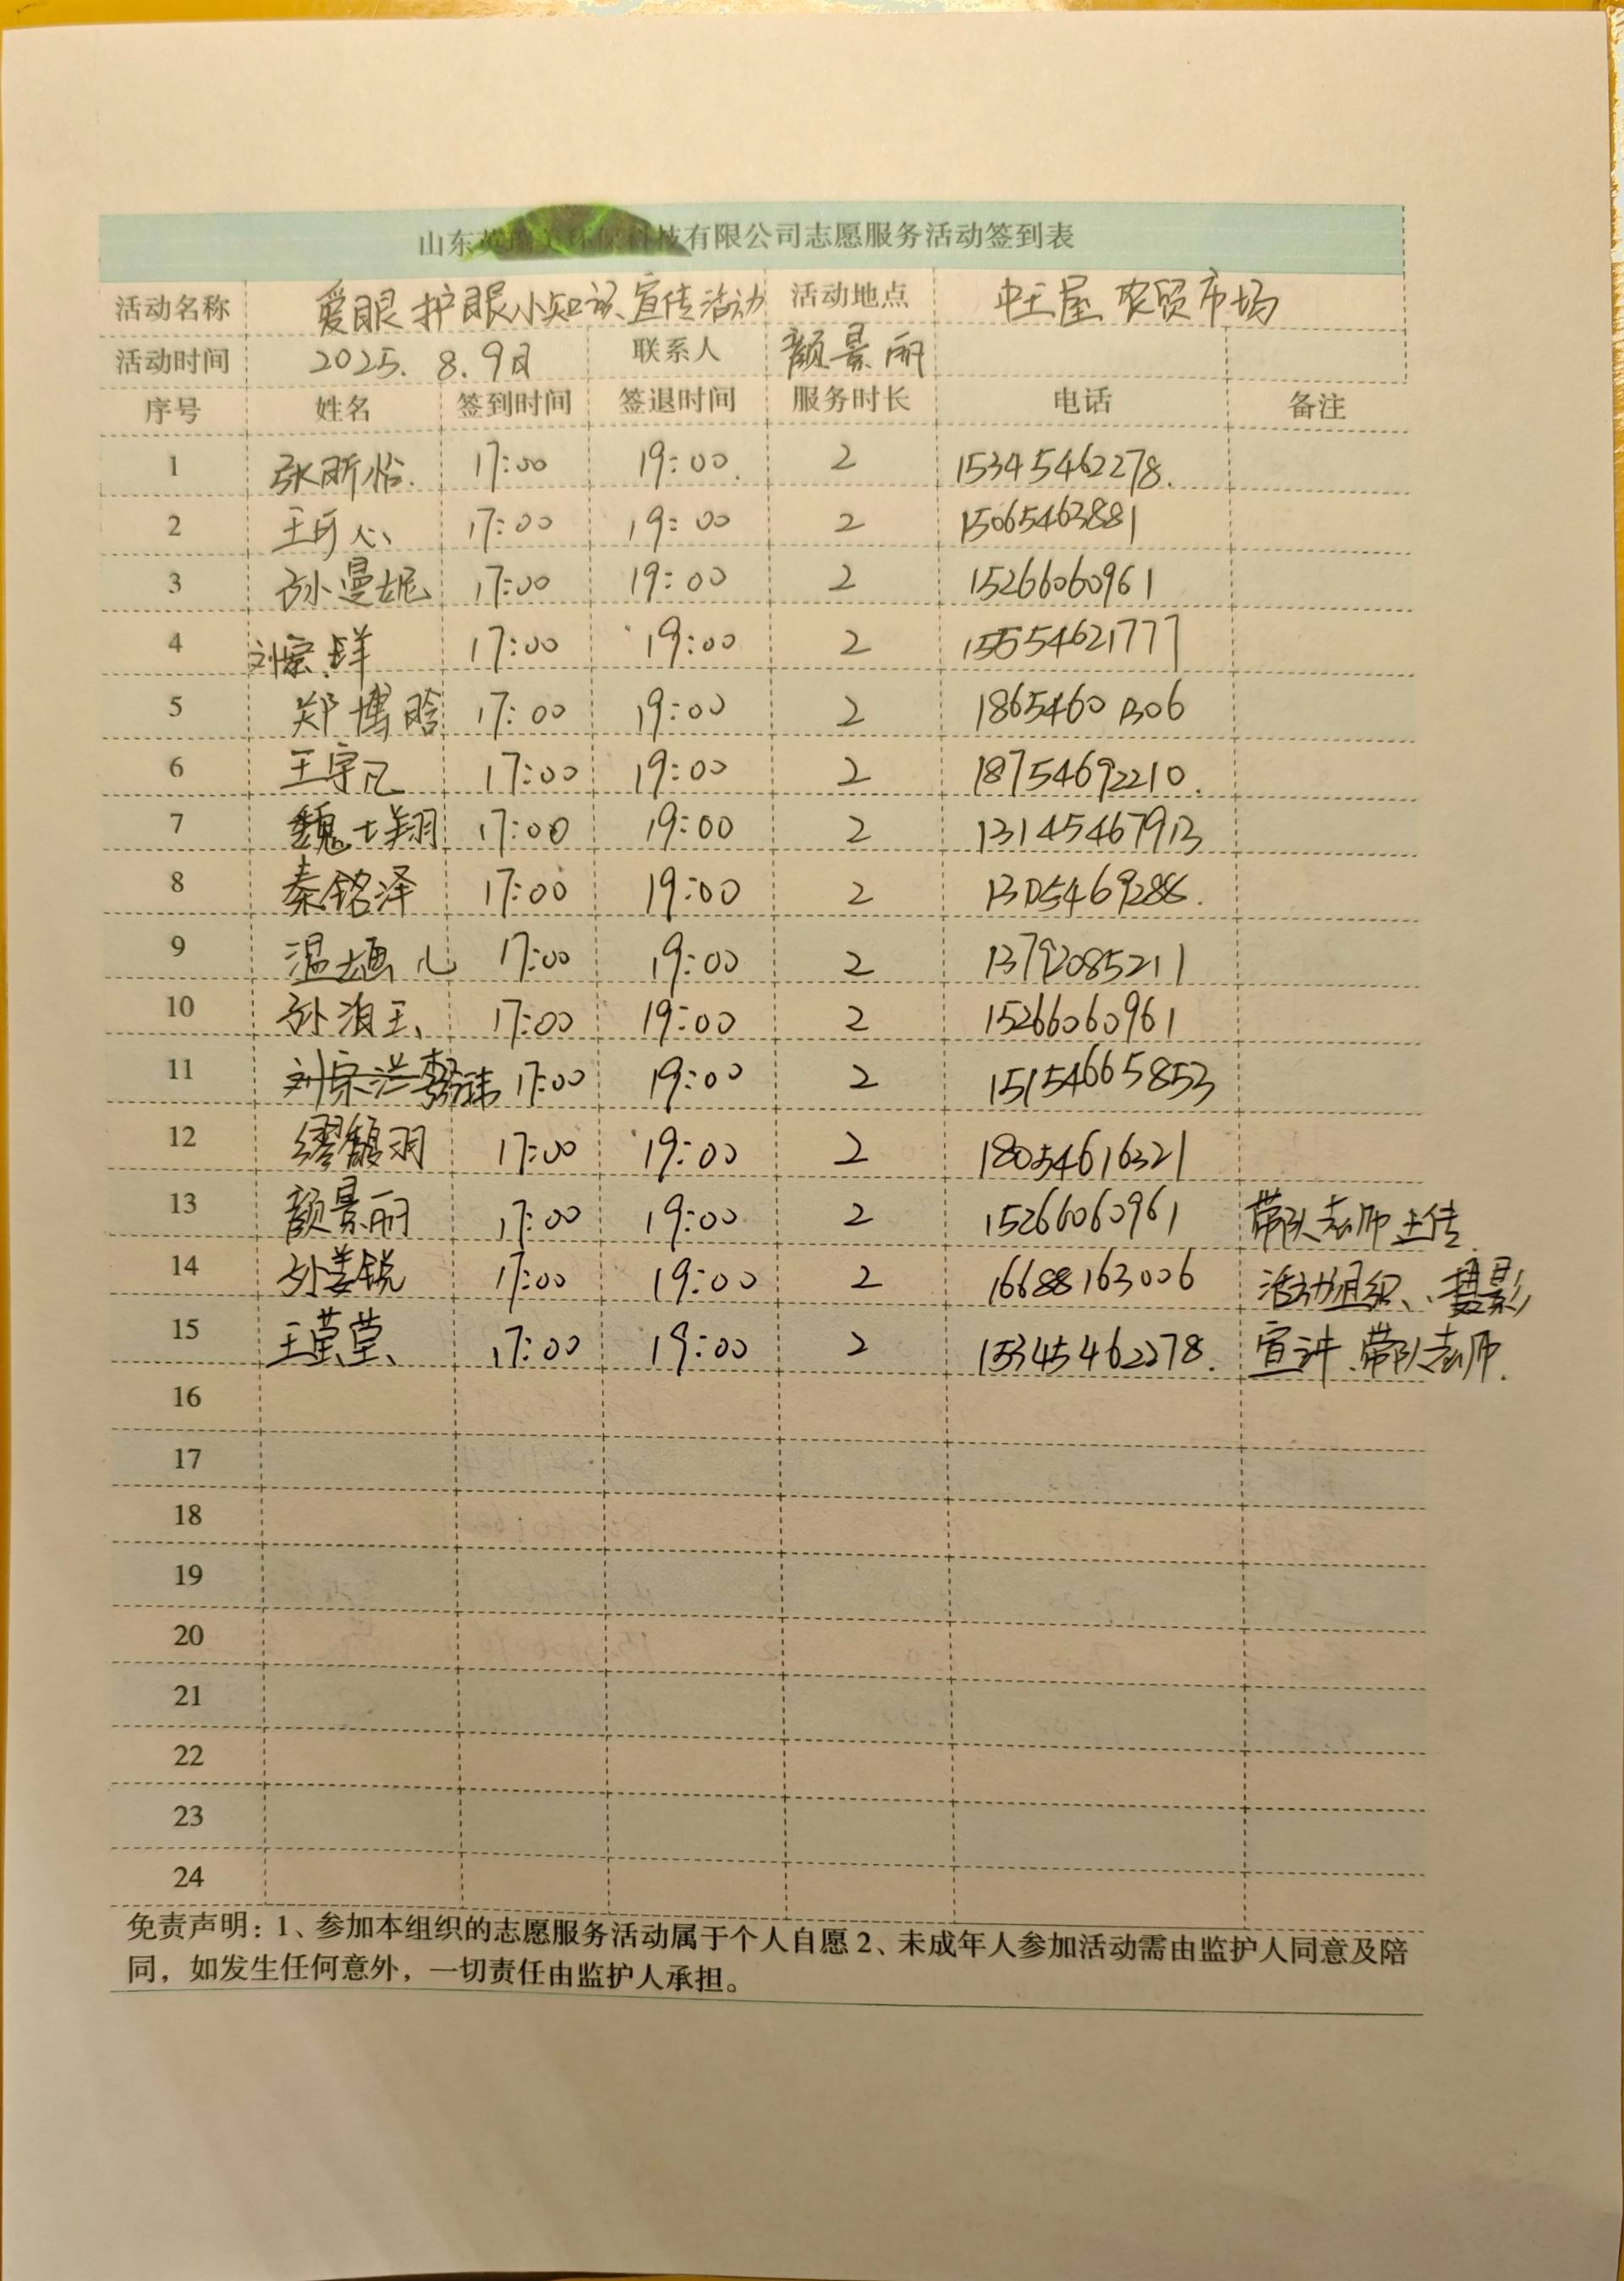 山东 有限公司志愿服务活动签到表
活动名称 爱眼护眼小知识宣传活动 活动地点 中王屋农贸市场
活动时间 2025.8.9日 联系人 颜景丽
序号 姓名 签到时间 签退时间 服务时长 电话 备注
1 张昕怡. 17:00 19:00. 2 15345462278.
2 王可心 17:00 19:00 2 15065463881
3 孙曼妮 17:00 19:00 2 15266060961
4 刘宗洋 17:00 19:00 2 15554621777
5 郑博晗 17:00 19:00 2 18654601306
6 王宇凡 17:00 19:00 2 18754692210.
7 魏士翔 17:00 19:00 2 13145467913
8 秦铭泽 17:00 19:00 2
9 温 儿 17:00 19:00 2 13792085211
10 孙 17:00 19:00 2 15266060961
11 17:00 19:00 2 15154665853
12 缪馥羽 17:00 19:00 2 18054616321
13 颜景丽 17:00 19:00 2 15266060961 带队老师上传.
14 孙姜锐 17:00 19:00 2 16688163006 活动组织、摄影
15 王莹莹 17:00 19:00 2 15345462278. 宣讲.带队老师.
16
17
18
19
20
21
22
23
24
免责声明：1、参加本组织的志愿服务活动属于个人自愿 2、未成年人参加活动需由监护人同意及陪
同，如发生任何意外，一切责任由监护人承担。